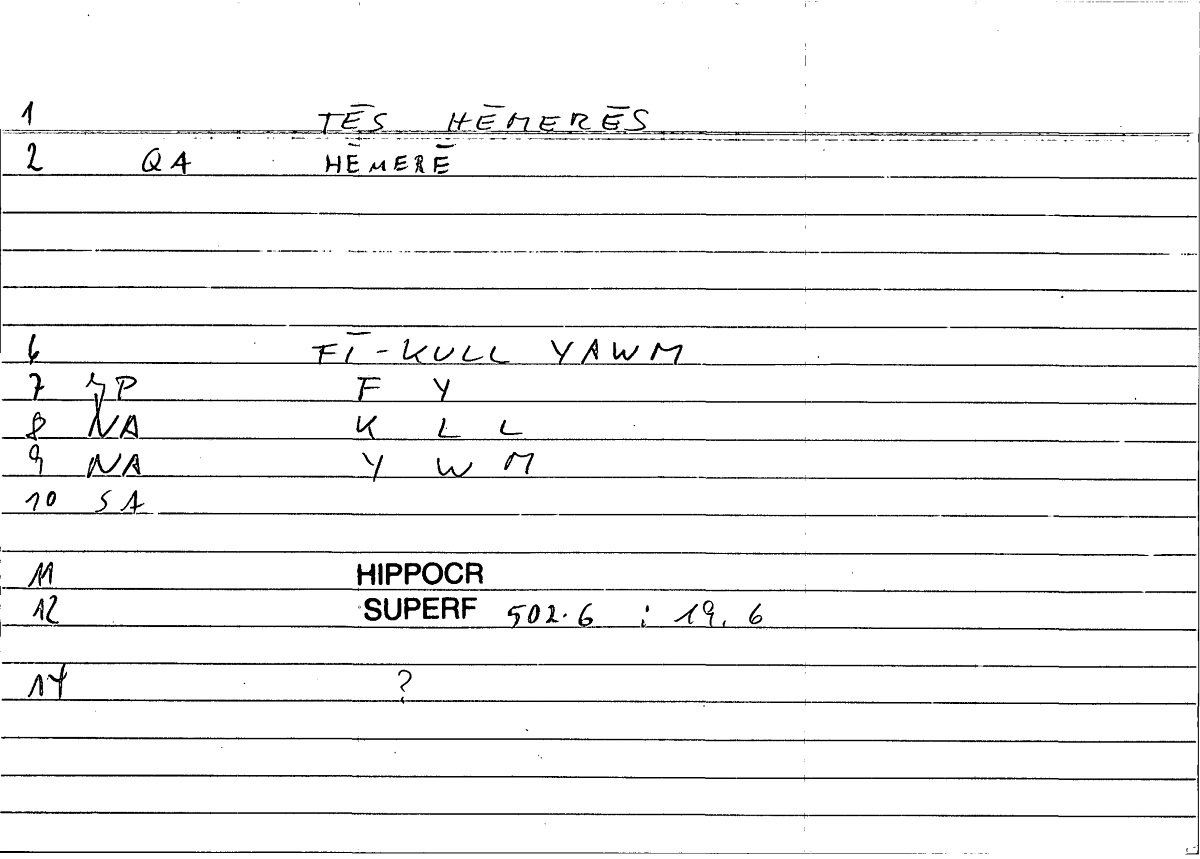 1 TĒS HĒMERĒS
2 QA HĒMERĒ
6 FĪ-KULL YAWM
7 P F Y
8 NA K L L
9 NA Y W M
10 SA
11 HIPPOCR
12 SUPERF 502.6 : 19.6
14 ?